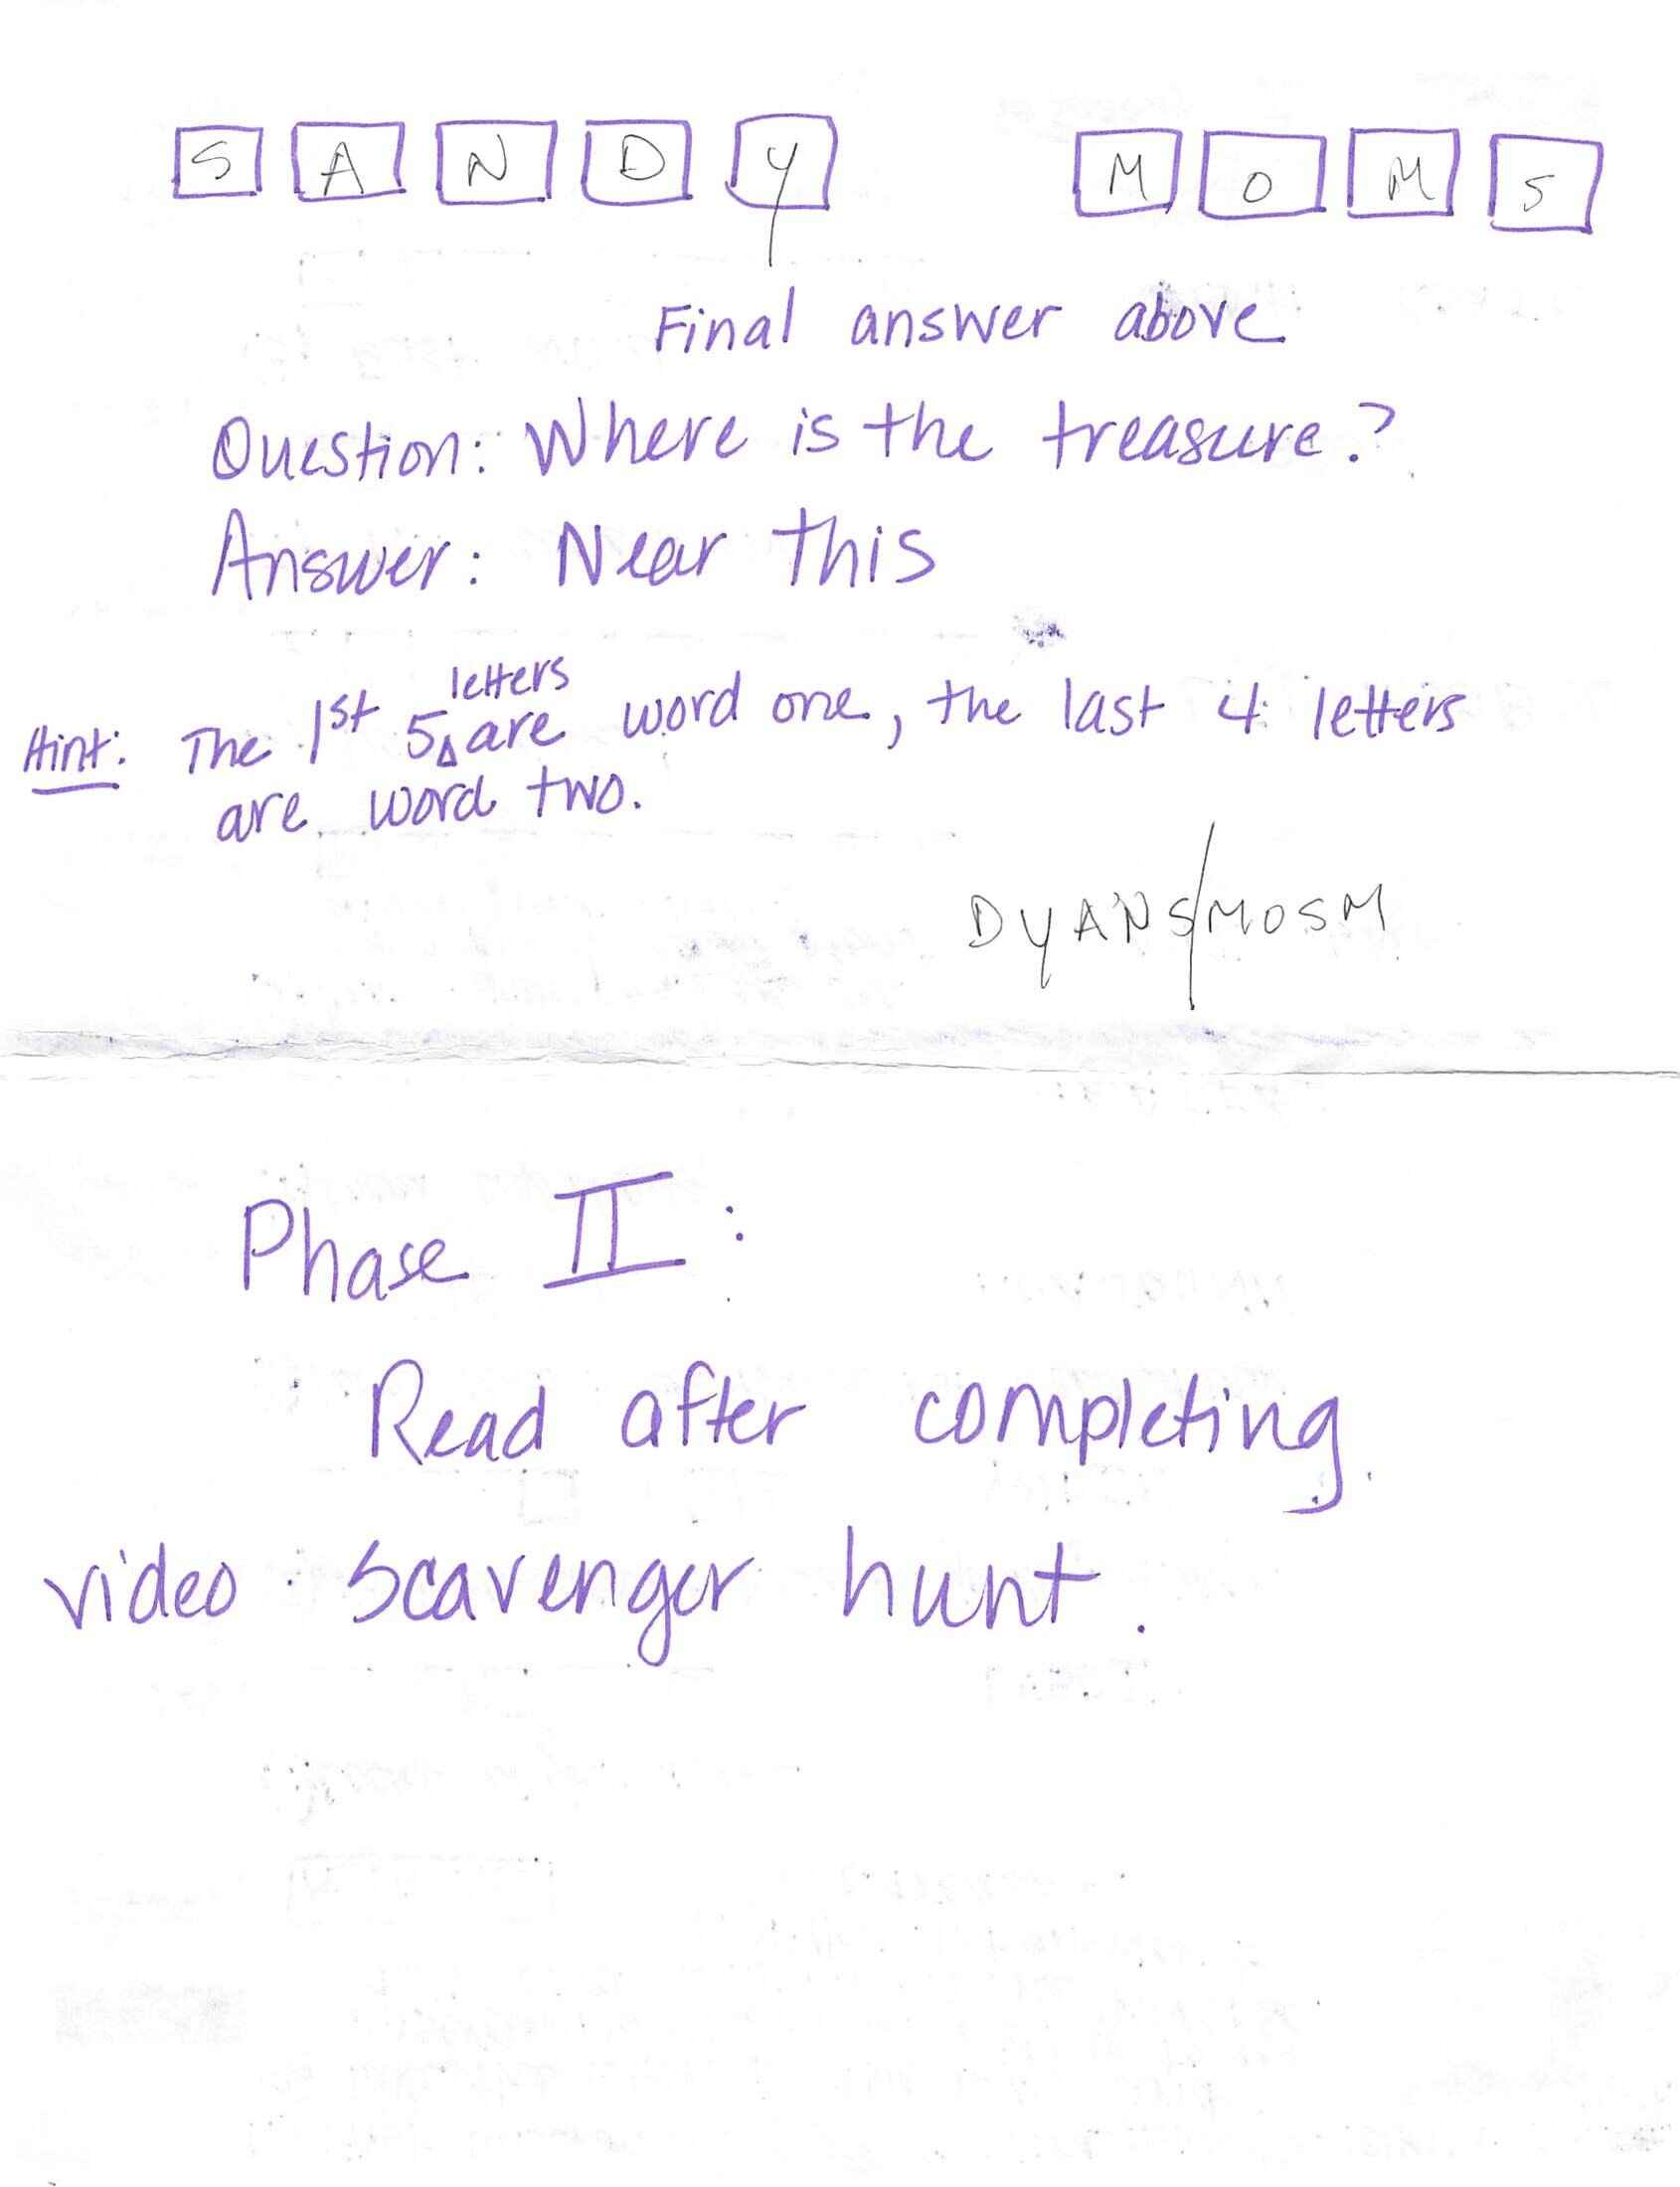 S A N D Y M O M S
Final answer above
Question: Where is the treasure?
Answer: Near this
letters
Hint: The 1st 5 are word one, the last 4 letters
are word two.
DYANS/MOSM
Phase II:
Read after completing
video scavenger hunt.